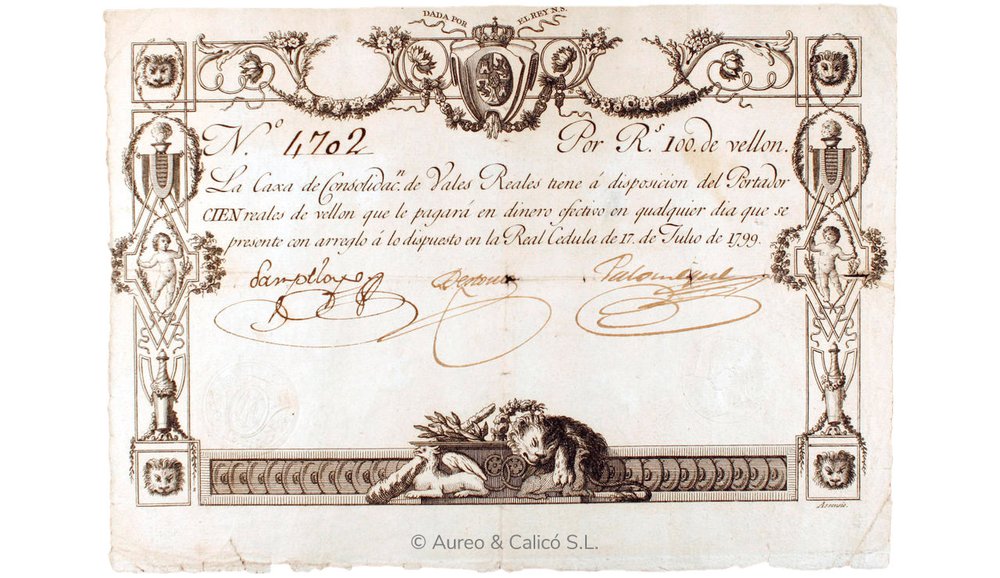 DADA POR EL REY N.S.
N.º 4702 Por R.s 100. de vellon.
La Caxa de Consolidac.n de Vales Reales tiene á disposicion del Portador
CIEN reales de vellon que le pagará en dinero efectivo en qualquier dia que se
presente con arreglo á lo dispuesto en la Real Cedula de 17. de Julio de 1799.
Palomeque
Assensio.
© Aureo & Calicó S.L.